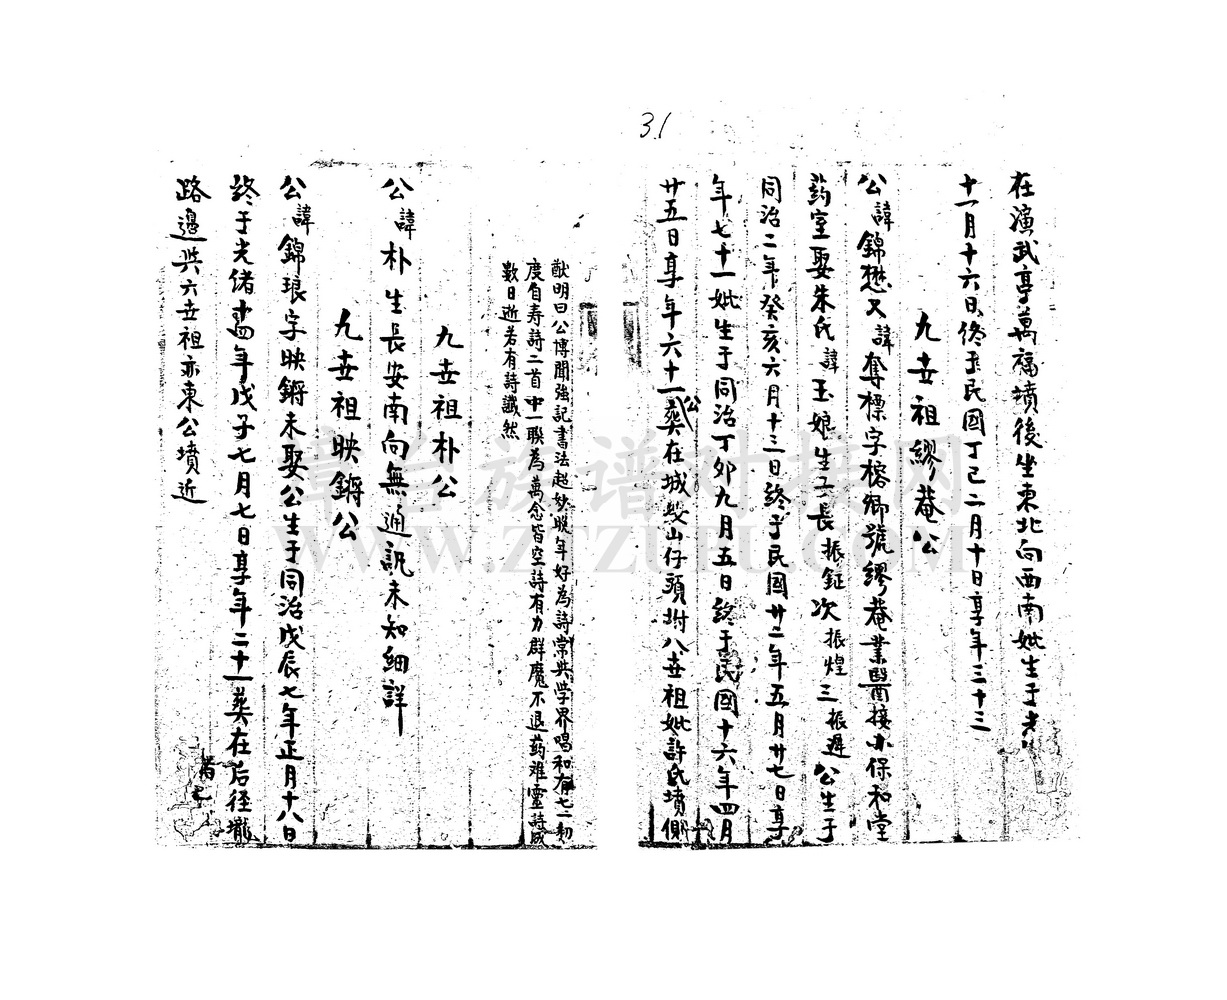 31
在演武亭萬福墳後坐東北向西南妣生于光
十一月十六日終于民國丁巳二月十日享年三十三
九世祖繆菴公
公諱錦懋又諱奪標字榕卿號繆菴業醫接木保和堂
药室娶朱氏諱玉娘生三長振鉦次振煌三振遲公生于
同治二年癸亥六月十三日終于民國廿二年五月廿七日享
年七十一妣生于同治丁卯九月五日終于民國十六年四月
廿五日享年六十一公葬在城 山仔頭坿八世祖妣許氏墳側
猷明曰公博聞強記書法超妙晚年好為詩常與学界唱和有七一初
度自寿詩二首中一聯為萬念皆空詩有力群魔不退药难靈詩成
数日逝若有詩讖然
九世祖朴公
公諱朴生長安南向無通訊未知細詳
九世祖映鏘公
公諱錦琅字映鏘未娶公生于同治戊辰七年正月十八日
終于光緒十四年戊子七月七日享年二十一葬在后径壠
路邊與六世祖亦東公墳近
漳台族谱对接网
WWW.ZTZUPU.COM